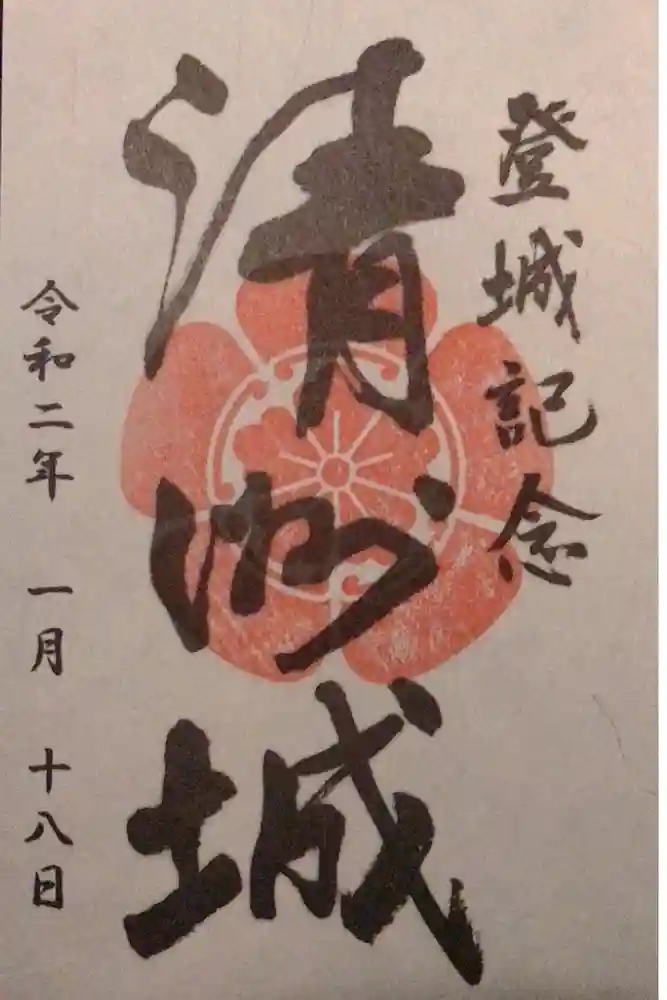 登城記念
清洲城
令和二年 一月 十八日